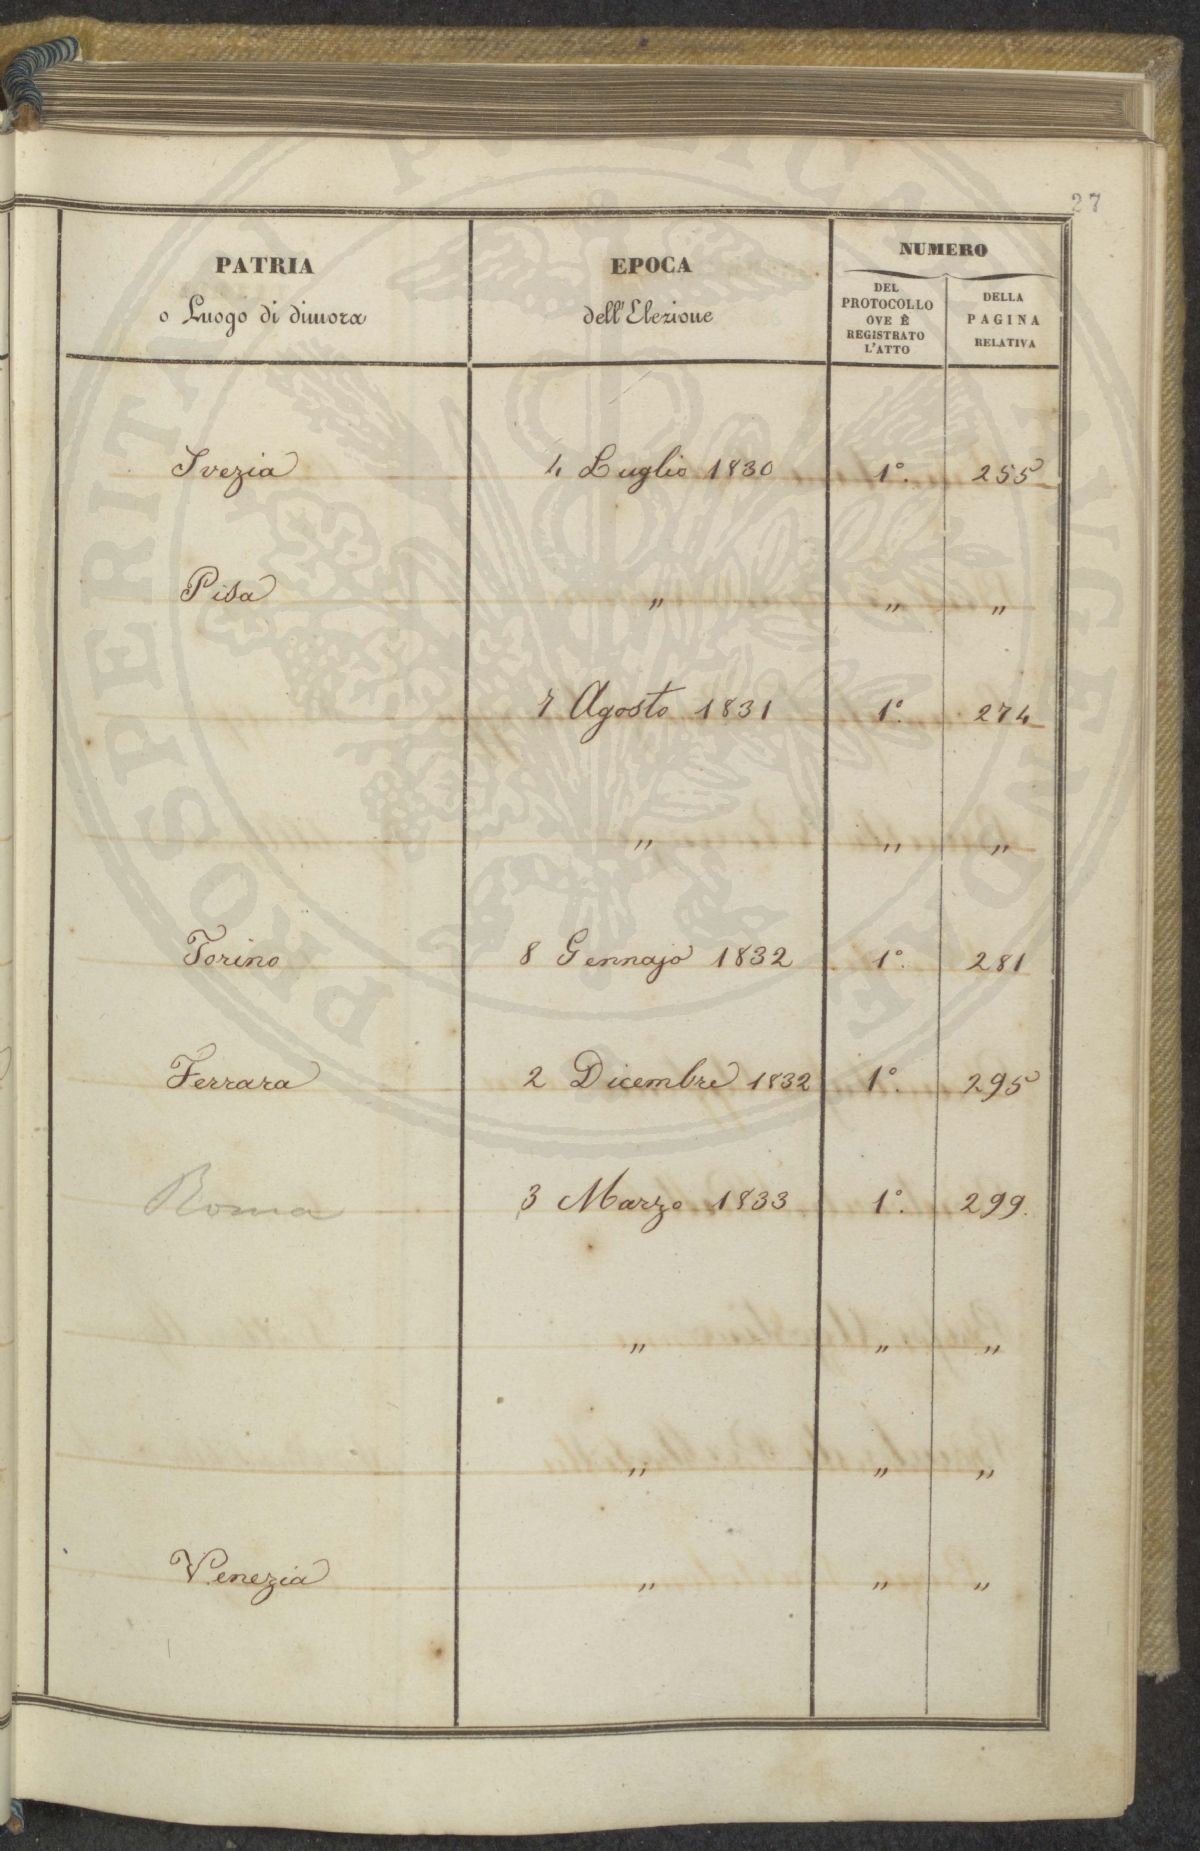 27
PATRIA
o Luogo di dimora
EPOCA
dell'Elezione
NUMERO
DEL
PROTOCOLLO
OVE È
REGISTRATO
L'ATTO
DELLA
PAGINA
RELATIVA
Svezia 4 Luglio 1830 1°. 255
Pisa " " "
7 Agosto 1831 1°. 274
" " "
Torino 8 Gennajo 1832 1°. 281
Ferrara 2 Dicembre 1832 1°. 295
Roma 3 Marzo 1833 1°. 299.
" " "
" " "
Venezia " " "
PROSPERITATI PUBLICAE AUGENDAE